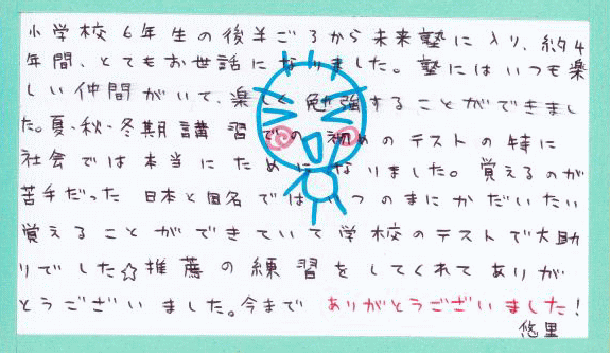 小学校6年生の後半ごろから未来塾に入り、約4
年間、とてもお世話になりました。塾にはいつも楽
しい仲間がいて、楽しく勉強することができまし
た。夏・秋・冬期講習での初めのテストの特に
社会では本当にためになりました。覚えるのが
苦手だった日本と国名ではいつのまにかだいたい
覚えることができていて学校のテストで大助
りでした☆推薦の練習をしてくれてありが
とうございました。今まで ありがとうございました!
悠里